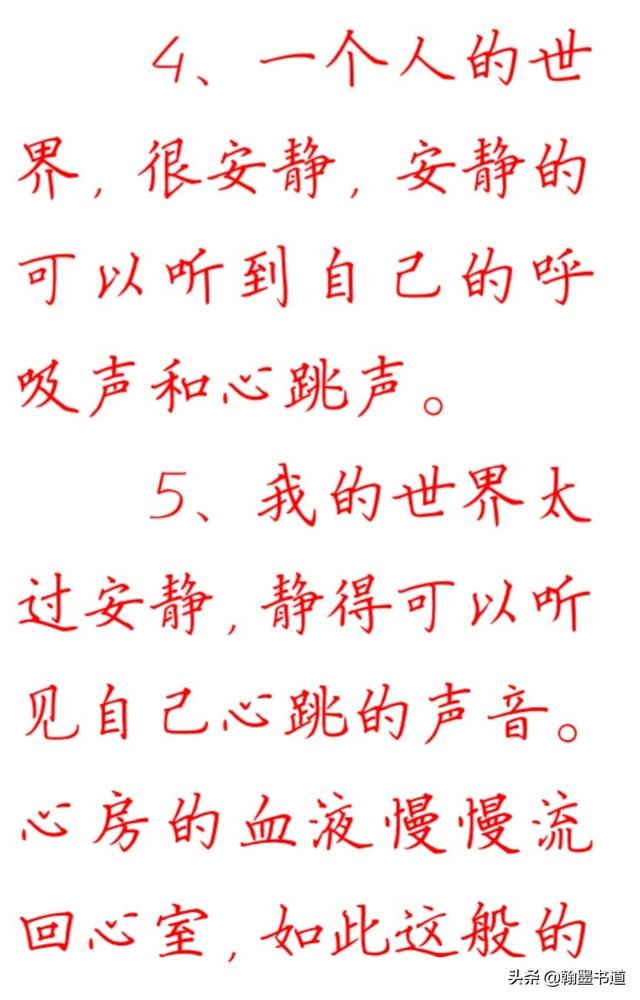 4、一个人的世
界，很安静，安静的
可以听到自己的呼
吸声和心跳声。
5、我的世界太
过安静，静得可以听
见自己心跳的声音。
心房的血液慢慢流
回心室，如此这般的
头条 @翰墨书道